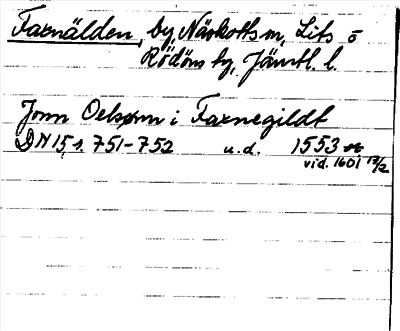 Faxnälden, by, Näskotts sn, Lits o
Rödöns tg, Jämtl. l.
Jonn Oelssom i Faxnegildt
DN 15 s. 751-752 u.d. 1553
vid. 1601 17/2